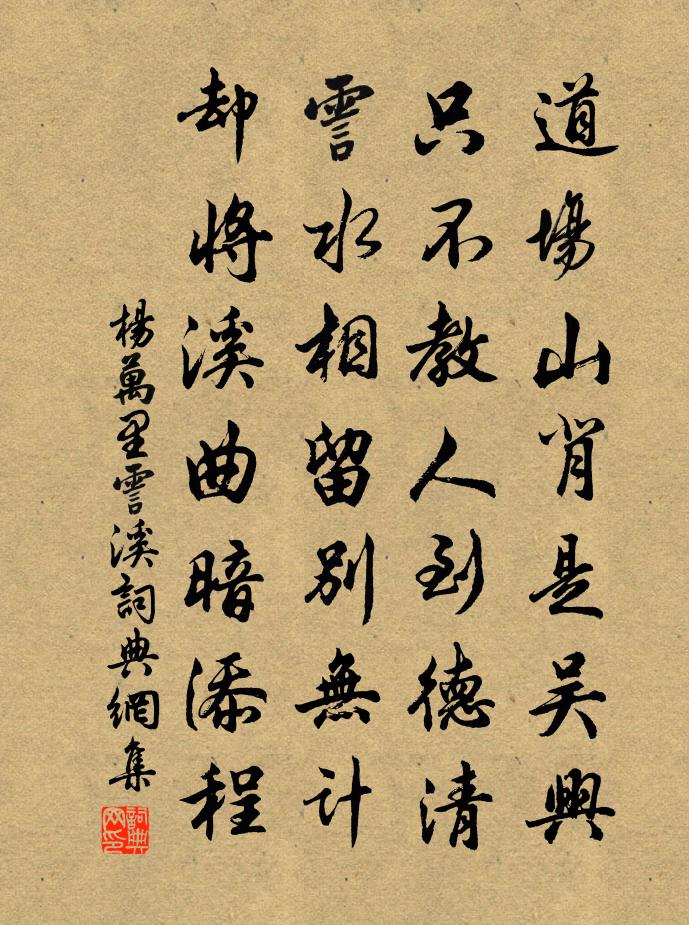 道場山背是吴興
只不教人到德清
霅水相留別無計
却將溪曲暗添程
楊萬里霅溪詞典網集
詞典網印